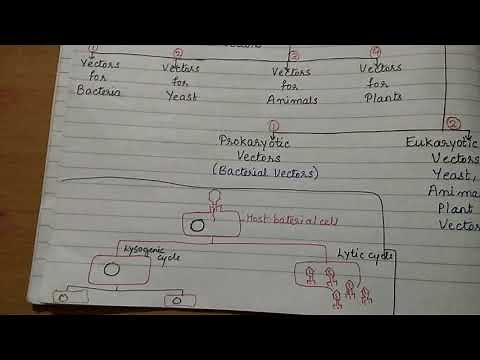 ① ② ③ ④
Vectors Vectors Vectors Vectors
for for for for
Bacteria Yeast Animals Plants
① ②
Prokaryotic Eukaryotic
Vectors Vectors
(Bacterial Vectors) Yeast,
Anima
Plant
Vector
Host baterial cell
Lysogenic
cycle
Lytic cycle